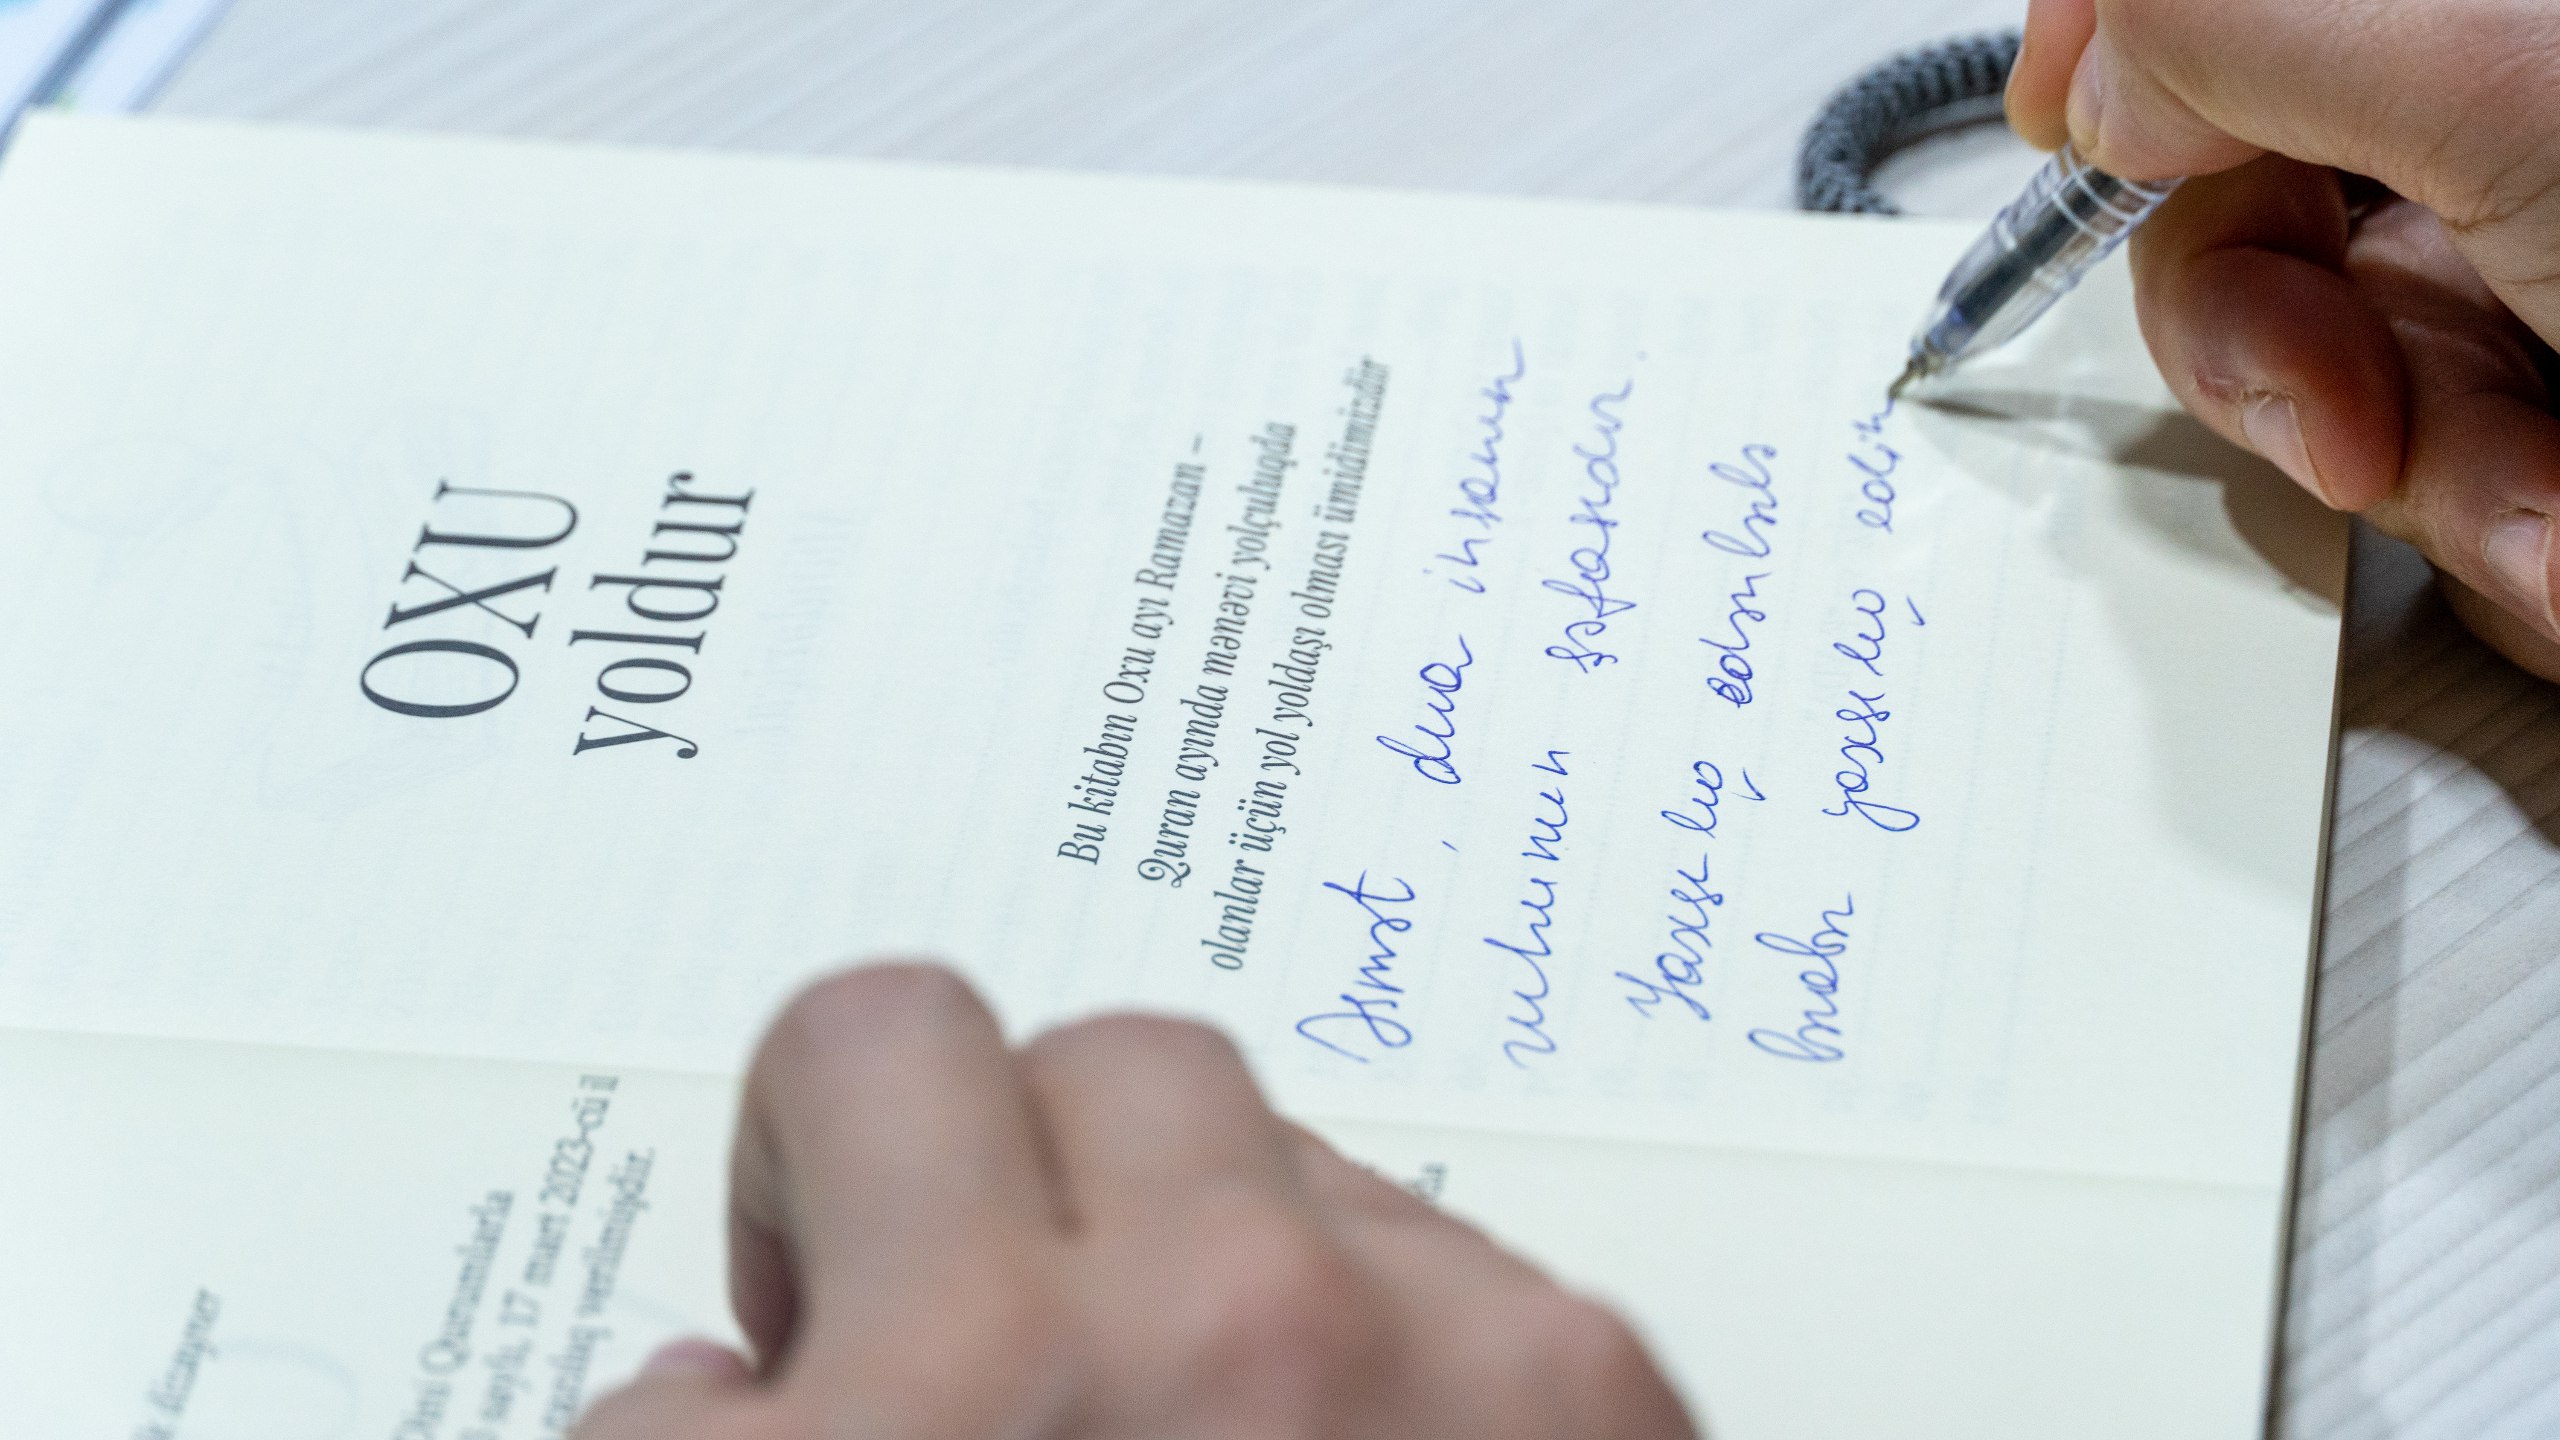 OXU
yoldur
Bu kitabın Oxu ayı Ramazan –
Quran ayında mənəvi yolçuluqda
olanlar üçün yol yoldaşı olması ümidimizdir
Əsmət, dua insanın
ruhunun şəfasıdır.
Yaxşılıq edənlərlə
bərabər yaxşılıq edin
dizayner
Dini Qurumlarla
saylı, 17 mart 2023-cü il
razılıq verilmişdir.